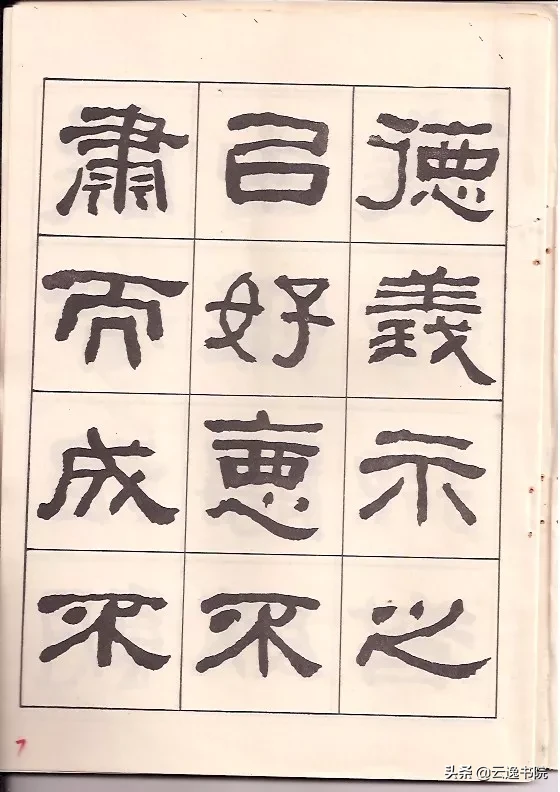 德義示之
㠯好惡不
肅而成不
7
头条 @云逸书院